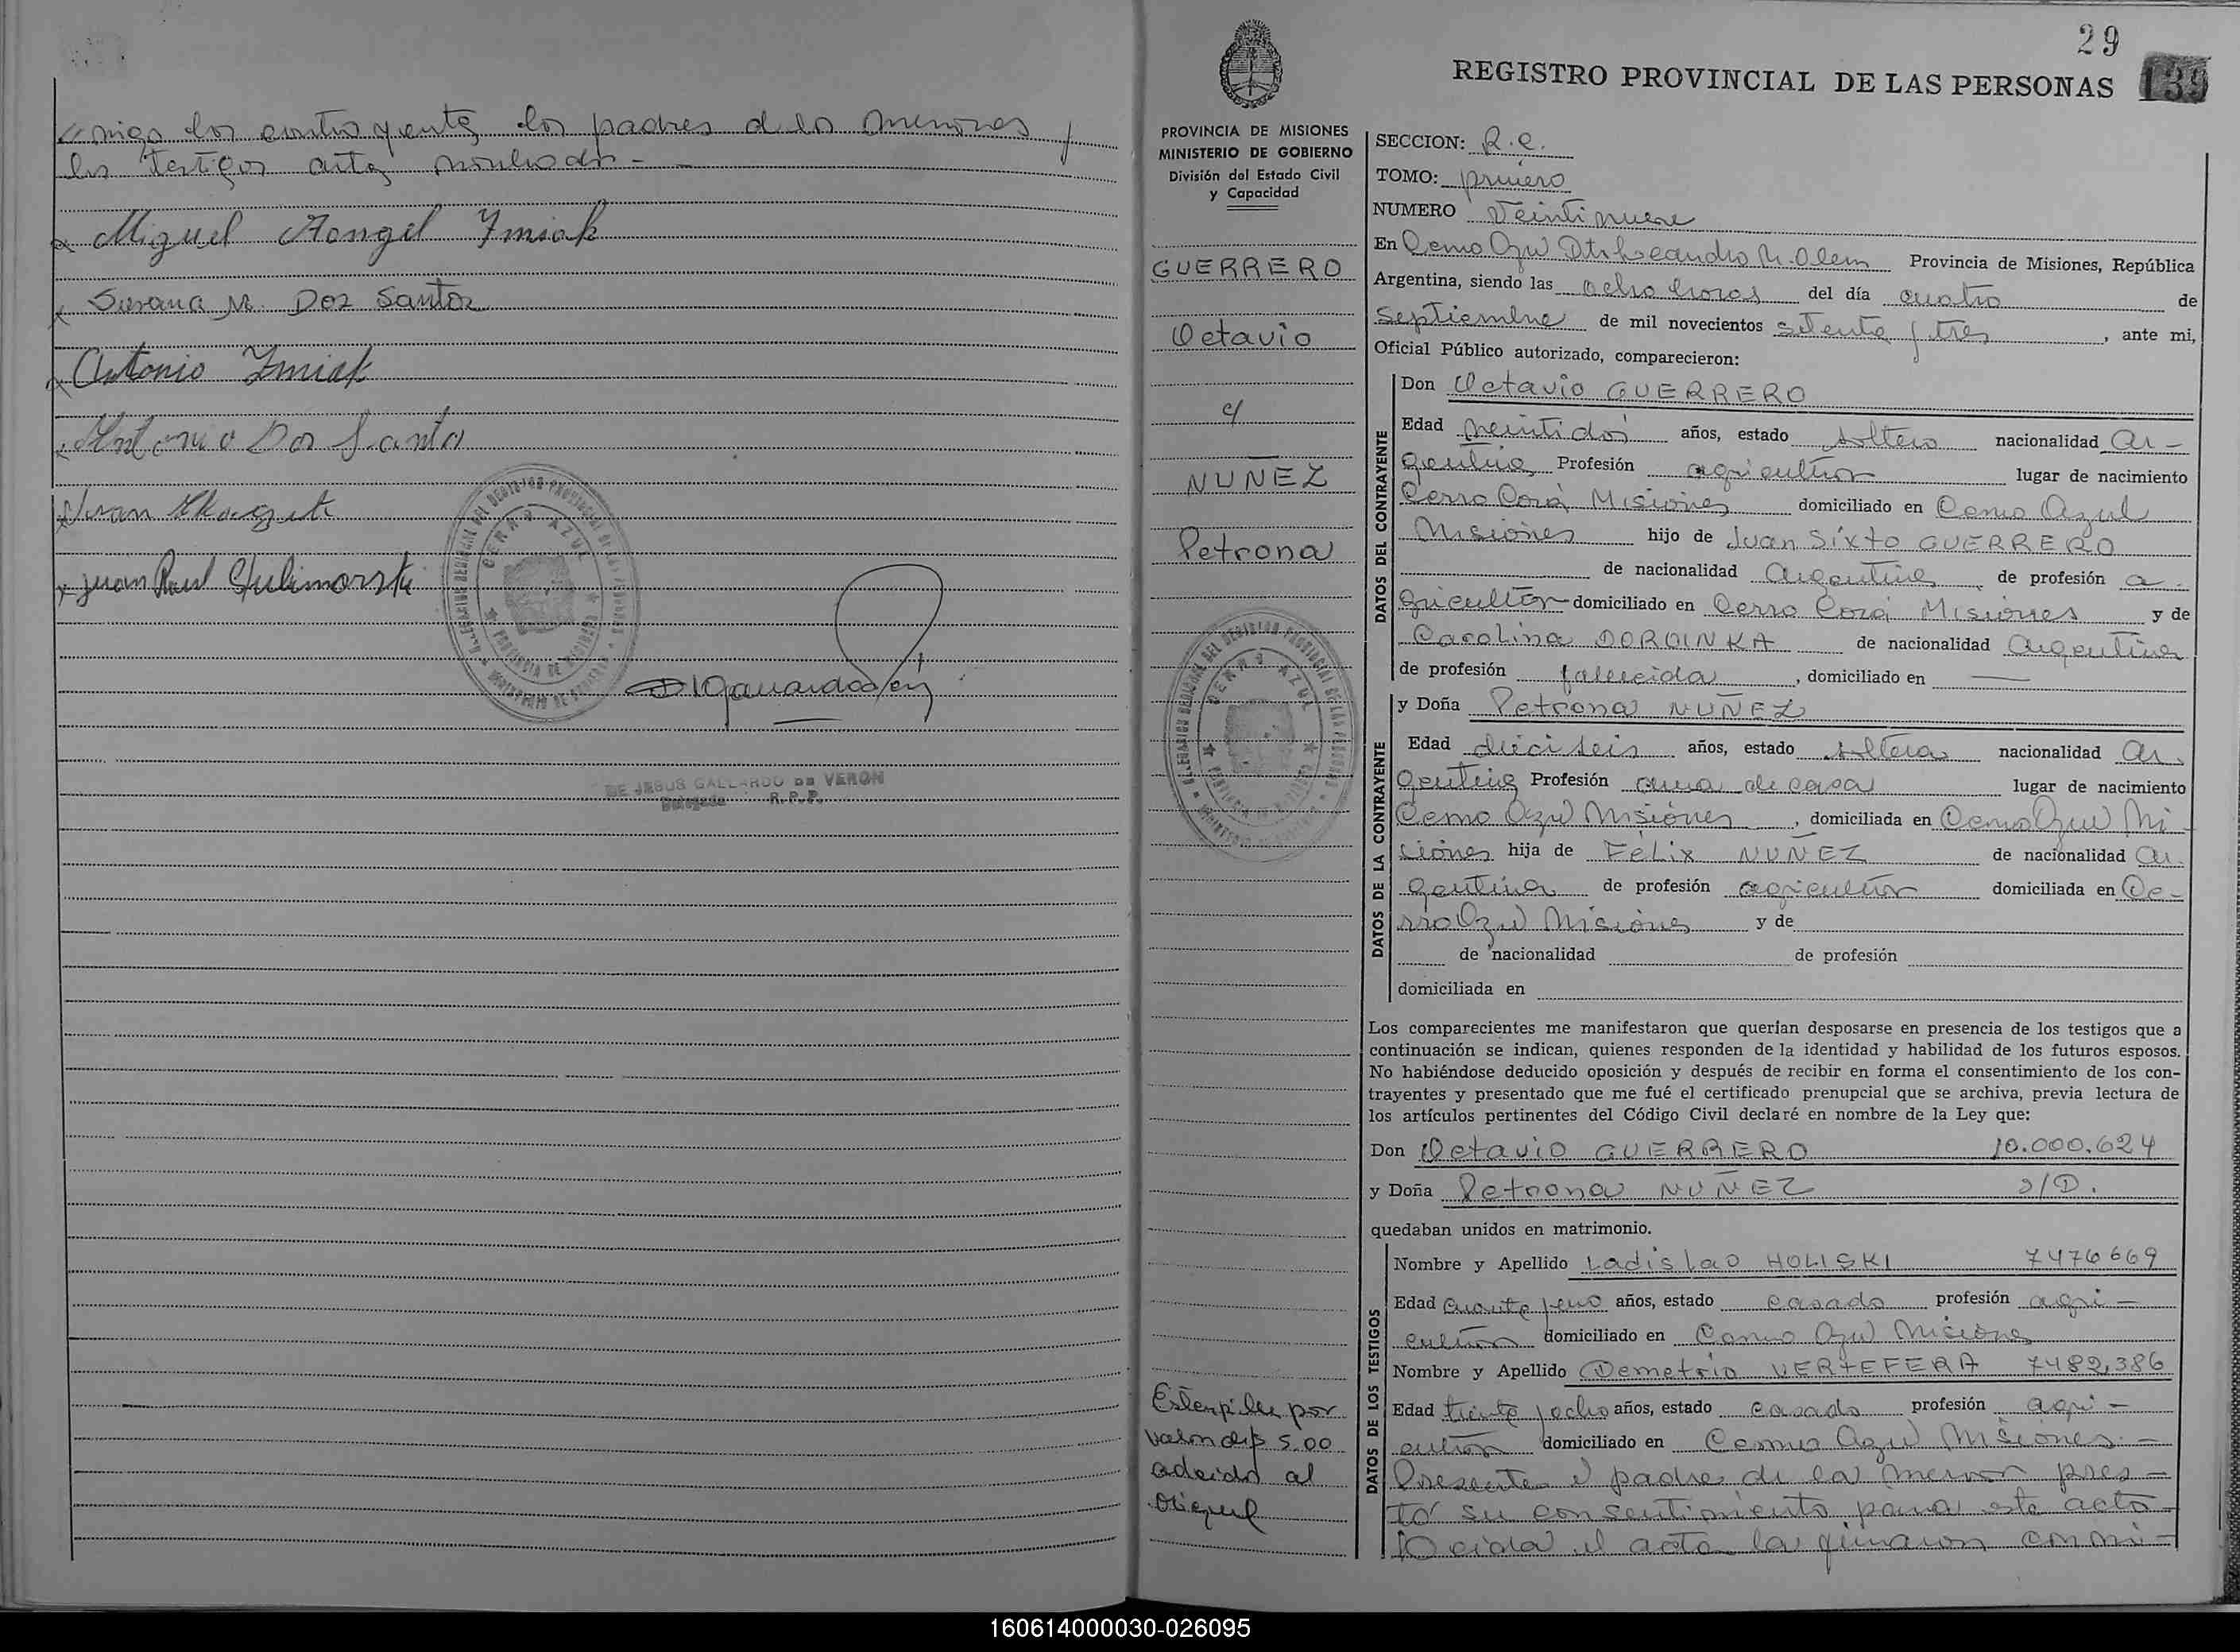 migo los contrayentes los padres de los menores y
los testigos antes nombrados -
x Miguel Aongel Ymiak
x Susana M. Dos Santos
x Antonio Ymiak
x Antonio Dos Santo
x Juan
x Juan Raul
DE JESUS GALLARDO DE VERON
Delegada R.P.P.
29
REGISTRO PROVINCIAL DE LAS PERSONAS 139
PROVINCIA DE MISIONES
MINISTERIO DE GOBIERNO
División del Estado Civil
y Capacidad
GUERRERO
Octavio
c/
NUÑEZ
Petrona
CERRO AZUL
Estampillas por
valor de $ 5.00
aderido al
SECCION: R.C.
TOMO: primero
NUMERO Veintinueve
En Cerro Azul Dto Leandro N. Alem Provincia de Misiones, República
Argentina, siendo las ocho horas del día cuatro de
Septiembre de mil novecientos setenta y tres, ante mi,
Oficial Público autorizado, comparecieron:
DATOS DEL CONTRAYENTE
Don Octavio GUERRERO
Edad veintidos años, estado soltero nacionalidad Ar-
gentina Profesión agricultor lugar de nacimiento
Cerro Corá Misiones domiciliado en Cerro Azul
Misiones hijo de Juan Sixto GUERRERO
de nacionalidad Argentina de profesión a-
gricultor domiciliado en Cerro Corá Misiones y de
Carolina DOROINKA de nacionalidad Argentina
de profesión fallecida, domiciliado en —
DATOS DE LA CONTRAYENTE
y Doña Petrona NUÑEZ
Edad dieciseis años, estado soltera nacionalidad Ar
gentina Profesión ama de casa lugar de nacimiento
Cerro Azul Misiones, domiciliada en Cerro Azul Mi-
siones hija de Felix NUÑEZ de nacionalidad Ar-
gentina de profesión agricultor domiciliada en Ce-
rro Azul Misiones y de
de nacionalidad de profesión
domiciliada en
Los comparecientes me manifestaron que querían desposarse en presencia de los testigos que a
continuación se indican, quienes responden de la identidad y habilidad de los futuros esposos.
No habiéndose deducido oposición y después de recibir en forma el consentimiento de los con-
trayentes y presentado que me fué el certificado prenupcial que se archiva, previa lectura de
los artículos pertinentes del Código Civil declaré en nombre de la Ley que:
Don Octavio GUERRERO 10.000.624
y Doña Petrona NUÑEZ S/D.
quedaban unidos en matrimonio.
DATOS DE LOS TESTIGOS
Nombre y Apellido Ladislao HOLISKI 7476669
Edad cuarenta y uno años, estado casado profesión agri-
cultor domiciliado en Cerro Azul Misiones
Nombre y Apellido Demetrio VERTEFERA 7482,386
Edad treinta y ocho años, estado casado profesión agri-
cultor domiciliado en Cerro Azul Misiones. -
Presente el padre de la menor pres-
tó su consentimiento para este acto
Leida el acta la firmaron conmi-
160614000030-026095